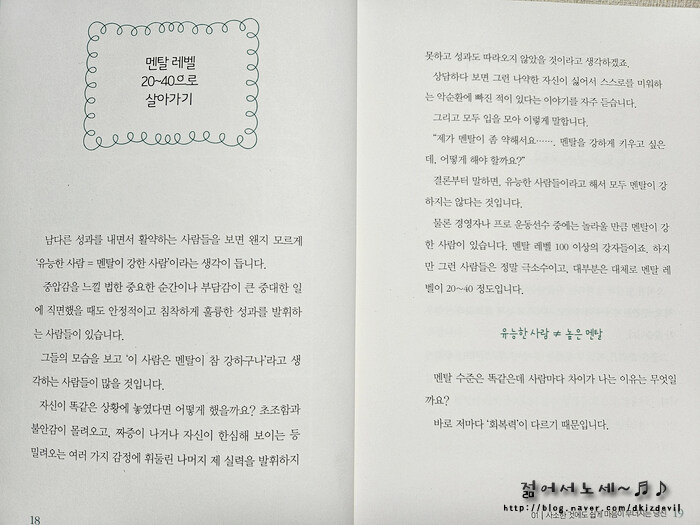 멘탈 레벨
20~40으로
살아가기
남다른 성과를 내면서 활약하는 사람들을 보면 왠지 모르게
‘유능한 사람 = 멘탈이 강한 사람’이라는 생각이 듭니다.
중압감을 느낄 법한 중요한 순간이나 부담감이 큰 중대한 일
에 직면했을 때도 안정적이고 침착하게 훌륭한 성과를 발휘하
는 사람들이 있습니다.
그들의 모습을 보고 ‘이 사람은 멘탈이 참 강하구나’라고 생
각하는 사람들이 많을 것입니다.
자신이 똑같은 상황에 놓였다면 어떻게 했을까요? 초조함과
불안감이 몰려오고, 짜증이 나거나 자신이 한심해 보이는 등
밀려오는 여러 가지 감정에 휘둘린 나머지 제 실력을 발휘하지
18
못하고 성과도 따라오지 않았을 것이라고 생각하겠죠.
상담하다 보면 그런 나약한 자신이 싫어서 스스로를 미워하
는 악순환에 빠진 적이 있다는 이야기를 자주 듣습니다.
그리고 모두 입을 모아 이렇게 말합니다.
“제가 멘탈이 좀 약해서요……. 멘탈을 강하게 키우고 싶은
데, 어떻게 해야 할까요?”
결론부터 말하면, 유능한 사람들이라고 해서 모두 멘탈이 강
하지는 않다는 것입니다.
물론 경영자나 프로 운동선수 중에는 놀라울 만큼 멘탈이 강
한 사람이 있습니다. 멘탈 레벨 100 이상의 강자들이죠. 하지
만 그런 사람들은 정말 극소수이고, 대부분은 대체로 멘탈 레
벨이 20~40 정도입니다.
유능한 사람 ≠ 높은 멘탈
멘탈 수준은 똑같은데 사람마다 차이가 나는 이유는 무엇일
까요?
바로 저마다 ‘회복력’이 다르기 때문입니다.
젊어서노세~♬♪
http://blog.naver.com/dkizdevil
01 | 사소한 것에도 쉽게 마음이 무너지는 당신 19